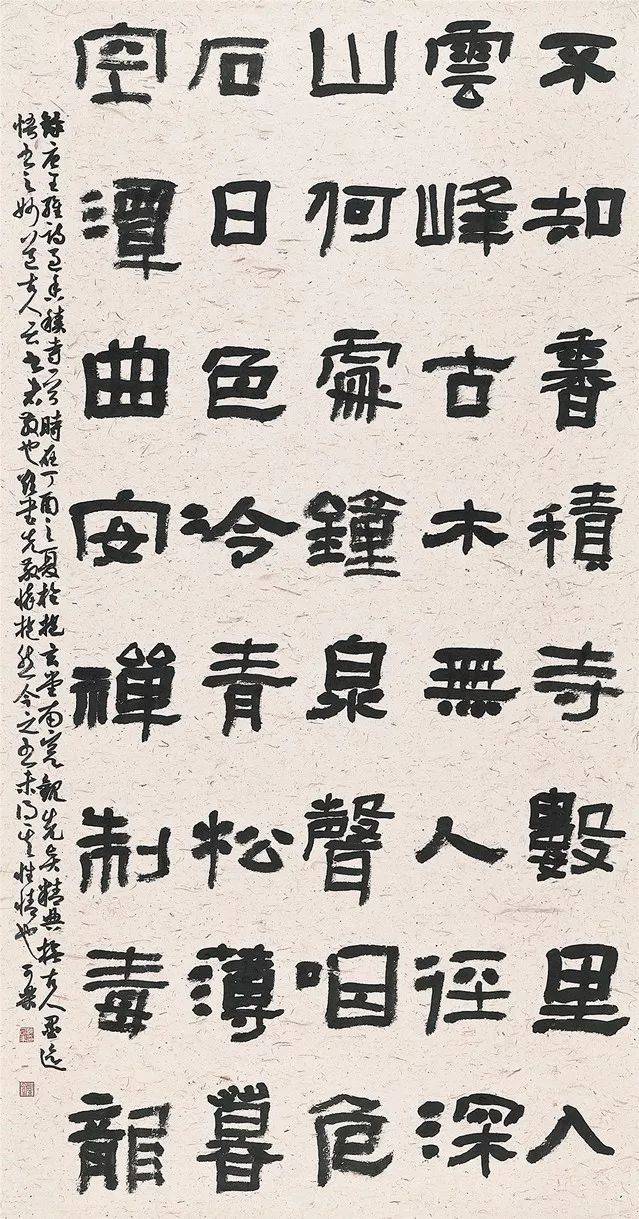 不知香積寺數里入
雲峰古木無人徑深
山何處鐘泉聲咽危
石日色冷青松薄暮
空潭曲安禪制毒龍
錄唐王維詩過香積寺一首時在丁酉之夏於抱玄堂南窗觀先精典古人墨迹
悟書之妙古人云書者散也欲書先散懷抱然今之書未得其性情也